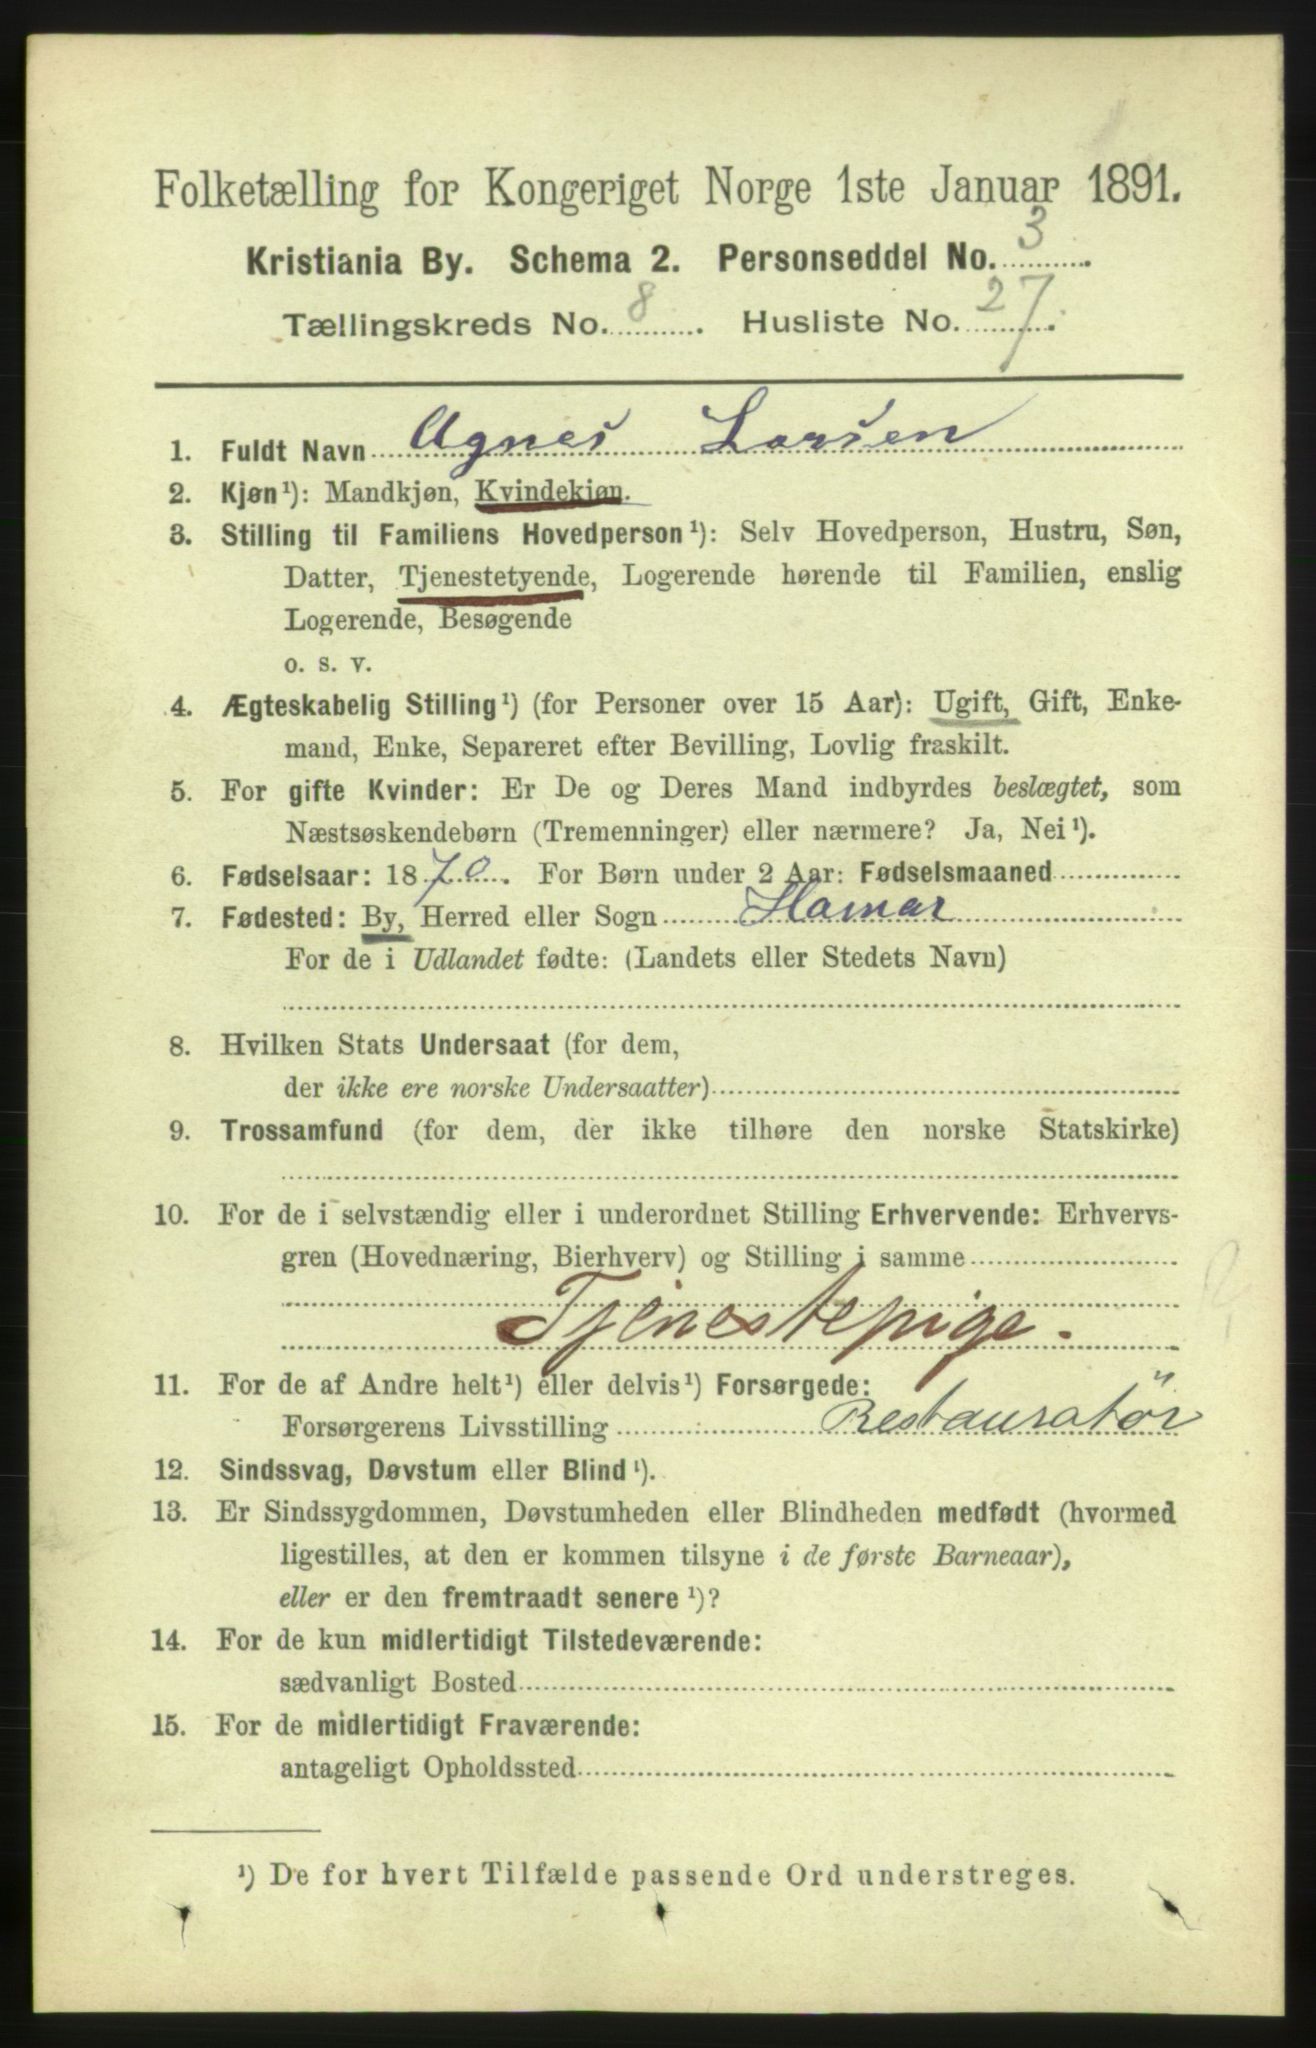 Folketælling for Kongeriget Norge 1ste Januar 1891.
Kristiania By. Schema 2. Personseddel No. 3
Tællingskreds No. 8. Husliste No. 27.
1. Fuldt Navn Agnes Larsen
2. Kjøn¹): Mandkjøn, Kvindekjøn.
3. Stilling til Familiens Hovedperson¹): Selv Hovedperson, Hustru, Søn,
Datter, Tjenestetyende, Logerende hørende til Familien, enslig
Logerende, Besøgende
o. s. v.
4. Ægteskabelig Stilling¹) (for Personer over 15 Aar): Ugift, Gift, Enke-
mand, Enke, Separeret efter Bevilling, Lovlig fraskilt.
5. For gifte Kvinder: Er De og Deres Mand indbyrdes beslægtet, som
Næstsøskendebørn (Tremenninger) eller nærmere? Ja, Nei¹).
6. Fødselsaar: 1870. For Børn under 2 Aar: Fødselsmaaned
7. Fødested: By, Herred eller Sogn Hamar
For de i Udlandet fødte: (Landets eller Stedets Navn)
8. Hvilken Stats Undersaat (for dem,
der ikke ere norske Undersaatter)
9. Trossamfund (for dem, der ikke tilhøre den norske Statskirke)
10. For de i selvstændig eller i underordnet Stilling Erhvervende: Erhvervs-
gren (Hovednæring, Bierhverv) og Stilling i samme
Tjenestepige.
11. For de af Andre helt¹) eller delvis¹) Forsørgede:
Forsørgerens Livsstilling Restauratör
12. Sindssvag, Døvstum eller Blind¹).
13. Er Sindssygdommen, Døvstumheden eller Blindheden medfødt (hvormed
ligestilles, at den er kommen tilsyne i de første Barneaar),
eller er den fremtraadt senere¹)?
14. For de kun midlertidigt Tilstedeværende:
sædvanligt Bosted
15. For de midlertidigt Fraværende:
antageligt Opholdssted
¹) De for hvert Tilfælde passende Ord understreges.